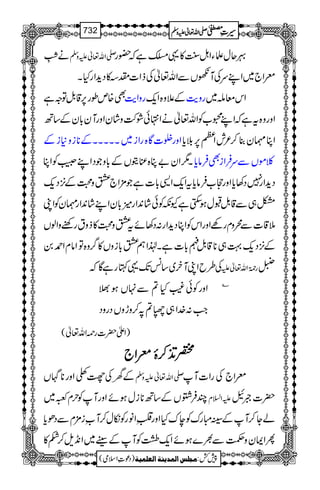 سیرتِ مصطفی صلی اللہ تعالیٰ علیہ وسلم 732
بہر حال علماء اہل سنت کا یہی مسلک ہے کہ حضور صلی اللہ تعالیٰ علیہ وسلم نے شب
معراج میں اپنے سر کی آنکھوں سے اللہ تعالیٰ کی ذات مقدسہ کا دیدار کیا۔
اس معاملہ میں رویت کے علاوہ ایک روایت بھی خاص طور پر قابل توجہ ہے
اور وہ یہ ہے کہ اپنے محبوب کو اللہ تعالیٰ نے انتہائی شوکت وشان اور آن بان کے ساتھ
اپنا مہمان بنا کر عرش اعظم پر بلایا اور خلوت گاہ راز میں۔۔۔۔۔ کے ناز و نیاز کے
کلاموں سے سرفراز بھی فرمایا۔ مگر ان بے پناہ عنایتوں کے باوجود اپنے حبیب کو اپنا
دیدار نہیں دکھایا اور حجاب فرمایا یہ ایک ایسی بات ہے جو مزاج عشق و محبت کے نزدیک
مشکل ہی سے قابل قبول ہو سکتی ہے کیونکہ کوئی شاندار میزبان اپنے شاندار مہمان کو اپنی
ملاقات سے محروم رکھے اور اس کو اپنا دیدار نہ دکھائے یہ عشق و محبت کا ذوق رکھنے والوں
کے نزدیک بہت ہی ناقابل فہم بات ہے۔ لہٰذا ہم عشق بازوں کا گروہ تو امام احمد بن
حنبل رحمۃ اللہ تعالیٰ علیہ کی طرح اپنی آخری سانس تک یہی کہتا رہے گا کہ
اور کوئی غیب کیا تم سے نہاں ہو بھلا
جب نہ خدا ہی چھپا تم پہ کروڑوں درود
(اعلیٰ حضرت رحمۃ اللہ تعالیٰ علیہ)
مختصر تذکرۂ معراج
معراج کی رات آپ صلی اللہ تعالیٰ علیہ وسلم کے گھر کی چھت کھلی اور ناگہاں
حضرت جبرئیل علیہ السلام چند فرشتوں کے ساتھ نازل ہوئے اور آپ کو حرم کعبہ میں
لے جا کر آپ کے سینہ مبارک کو چاک کیا اور قلب انور کو نکال کر آب زمزم سے دھویا
پھر ایمان و حکمت سے بھرے ہوئے ایک طشت کو آپ کے سینے میں انڈیل کر شکم کا
پیش کش: مجلس المدینۃ العلمیۃ (دعوتِ اسلامی)